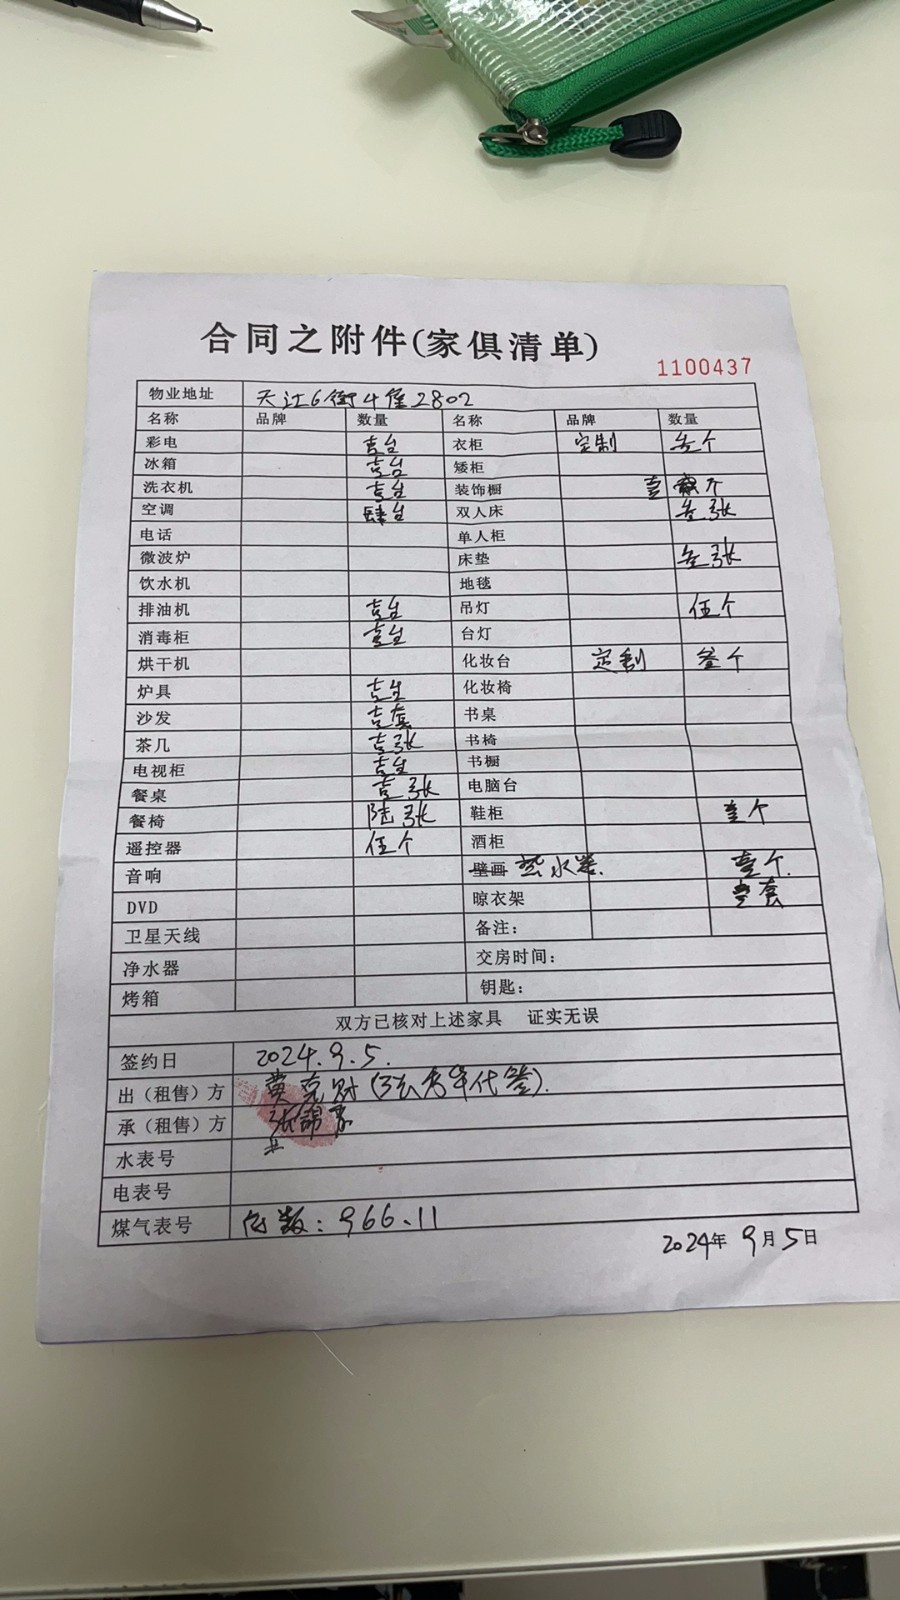 合同之附件(家俱清单)
1100437
物业地址 天江6街4座2802
名称 品牌 数量 名称 品牌 数量
彩电 壹台 衣柜 定制 叁个
冰箱 壹台 矮柜
洗衣机 壹台 装饰橱 壹 个
空调 肆台 双人床 叁张
电话 单人柜
微波炉 床垫 叁张
饮水机 地毯
排油机 壹台 吊灯 伍个
消毒柜 壹台 台灯
烘干机 化妆台 定制 个
炉具 壹台 化妆椅
沙发 壹套 书桌
茶几 壹张 书椅
电视柜 壹台 书橱
餐桌 壹张 电脑台
餐椅 陆张 鞋柜 壹个
遥控器 伍个 酒柜
音响 壁画 热水器. 壹个.
DVD 晾衣架 壹套
卫星天线 备注：
净水器 交房时间：
烤箱 钥匙：
双方已核对上述家具 证实无误
签约日 2024.9.5.
出（租售）方 黄 财 ( 代签).
承（租售）方 张锦
水表号
电表号
煤气表号 数：966.11
2024年 9月5日